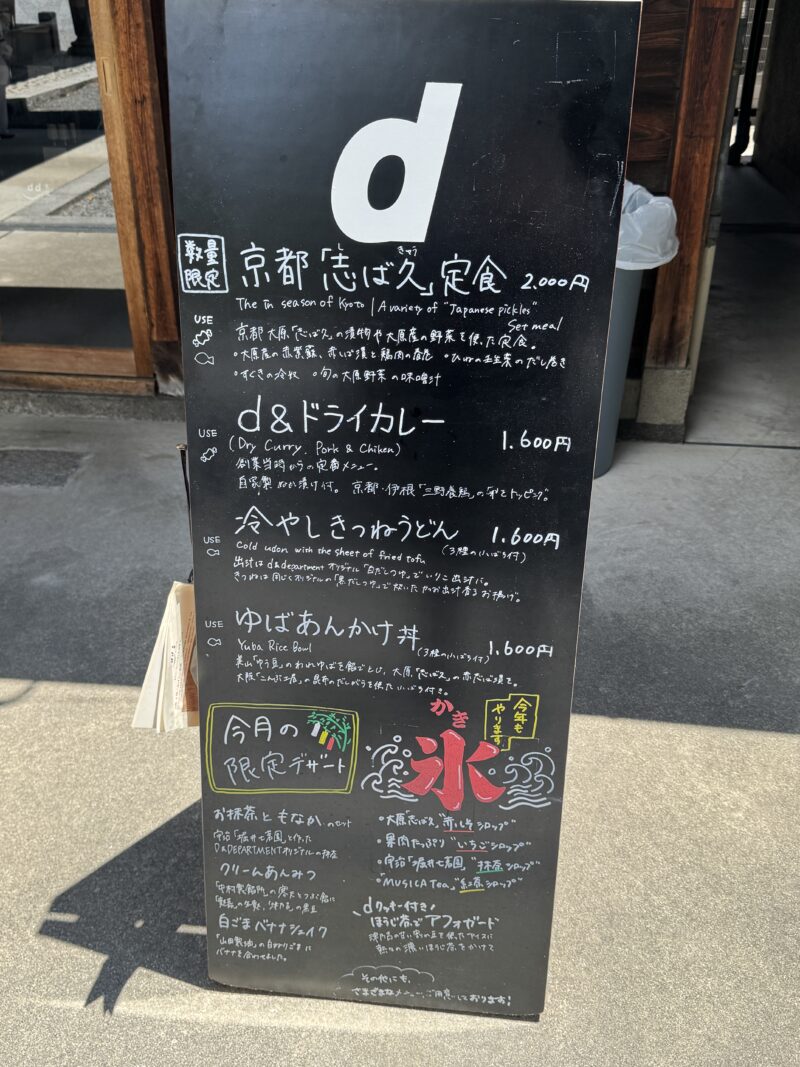 d
数量
限定
京都「志ば久」定食 2.000円
し きゅう
The in season of Kyoto / A variety of "Japanese pickles"
Set meal
USE
京都大原「志ば久」の漬物や大原産の野菜を使った定食。
・大原産の赤紫蘇、赤しば漬と鶏肉の ・ひねの壬生菜のだし巻き
・すぐきの冷奴 ・旬の大原野菜の味噌汁
USE
d&ドライカレー 1.600円
(Dry Curry. Pork & Chiken)
創業当時からの定番メニュー。
自家製ぬか漬け付。 京都・伊根「三野養鶏」の トッピング。
USE
冷やしきつねうどん 1.600円
Cold udon with the sheet of fried tofu (3種の小ばち付)
出汁はd&departmentオリジナル「白だしつゆ」でいりこ出汁に。
きつねは同じくオリジナルの「黒だしつゆ」で炊いた かつお出汁香るお揚げ。
USE
ゆばあんかけ丼 1.600円
Yuba Rice Bowl (3種の小ばち付)
美山「ゆう豆」の ゆばを餡でとじ、大原「志ば久」の赤だしば漬と。
大阪「こんぶ土居」の昆布のだしがらを使った小ばち付き。
今月の
限定デザート
お抹茶ともなかのセット
宇治「堀井七茗園」と作った
D&DEPARTMENTオリジナルの抹茶
クリームあんみつ
「中村製餡所」の寒天とつぶ餡に
白ごまバナナシェイク
「山田製油」の白ねりごまに
バナナを合わせました。
今年も
やります
かき
氷
・大原「志ば久」"赤しそシロップ"
・果肉たっぷり"いちごシロップ"
・宇治「堀井七茗園」"抹茶シロップ"
・「MUSICA Tea」"紅茶シロップ"
\dクッキー付き/
ほうじ茶でアフォガード
熱々の濃いほうじ茶をかけて
その他にも、
さまざまなメニューご用意しております！